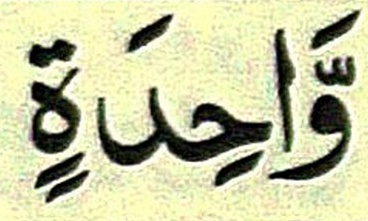 وَّاحِدَةٍ